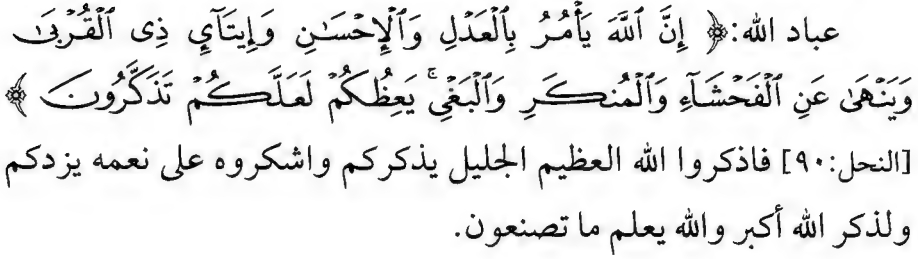 عباد الله: ﴿ إِنَّ ٱللَّهَ يَأْمُرُ بِٱلْعَدْلِ وَٱلْإِحْسَٰنِ وَإِيتَآيِٕ ذِى ٱلْقُرْبَىٰ
وَيَنْهَىٰ عَنِ ٱلْفَحْشَآءِ وَٱلْمُنكَرِ وَٱلْبَغْىِ ۚ يَعِظُكُمْ لَعَلَّكُمْ تَذَكَّرُونَ ﴾
[النحل:٩٠] فاذكروا الله العظيم الجليل يذكركم واشكروه على نعمه يزدكم
ولذكر الله أكبر والله يعلم ما تصنعون.